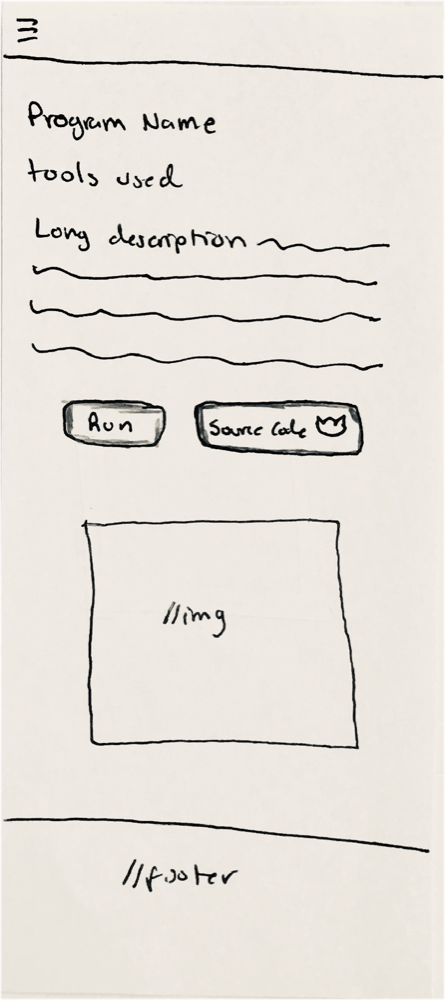 Program Name
tools used
Long description
Run
Source Code
//img
//footer